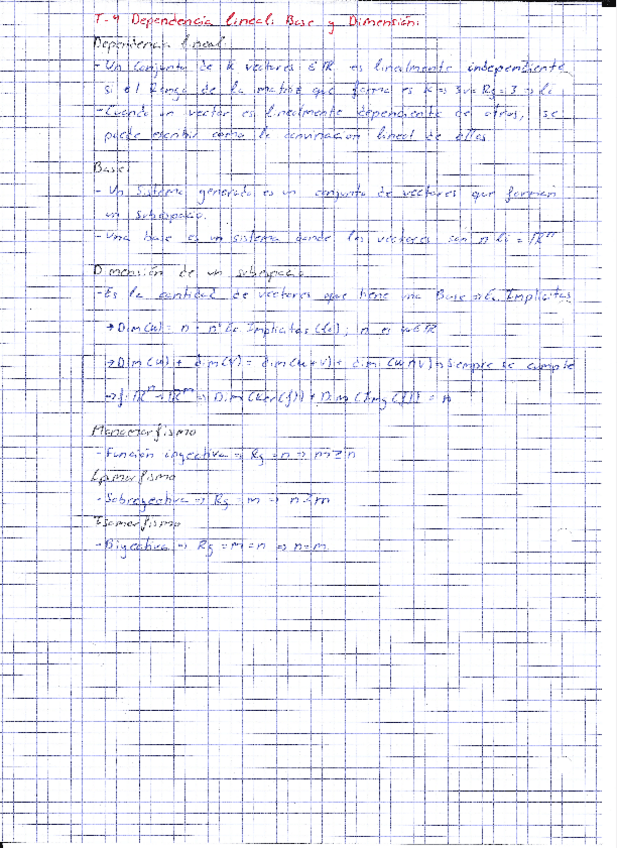 T-4 Dependencia lineal: Base y Dimensión:
Dependencia lineal:
- Un conjunto de k vectores ∈ℝ es linealmente independiente
si el Rango de la matriz que forma es k → 3v Rg=3 → li
- Cuando un vector es linealmente dependiente de otros, se
puede escribir como la convinación lineal de ellos
Base:
- Un Sistema generado es un conjunto de vectores que forman
un subespacio.
- Una base es un sistema donde los vectores son n li = ℝⁿ
Dimensión de un subespacio
- Es la cantidad de vectores que tiene una Base → Ec. Implicitas
→ Dim(u) = n - nº Ec Implicitas (li); n es u∈ℝ
→ Dim(u) + dim(v) = dim(u+v) + dim(u∩v) → Siempre se cumple
→ f: ℝⁿ→ℝᵐ → Dim(Ker(f)) + Dim(Img(f)) = n
Monomorfismo
- Función inyectiva → Rg = n → m≥n
Epimorfismo
- Sobreyectiva → Rg = m → n≥m
Isomorfismo
- Biyectiva → Rg = m = n → n=m